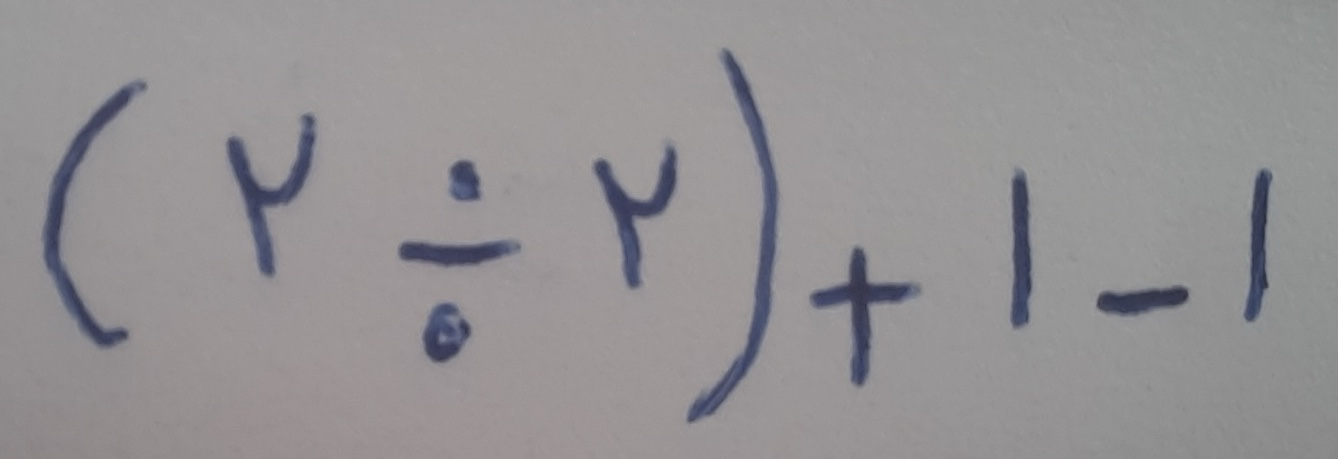 (۲ ÷ ۲) + ۱ - ۱